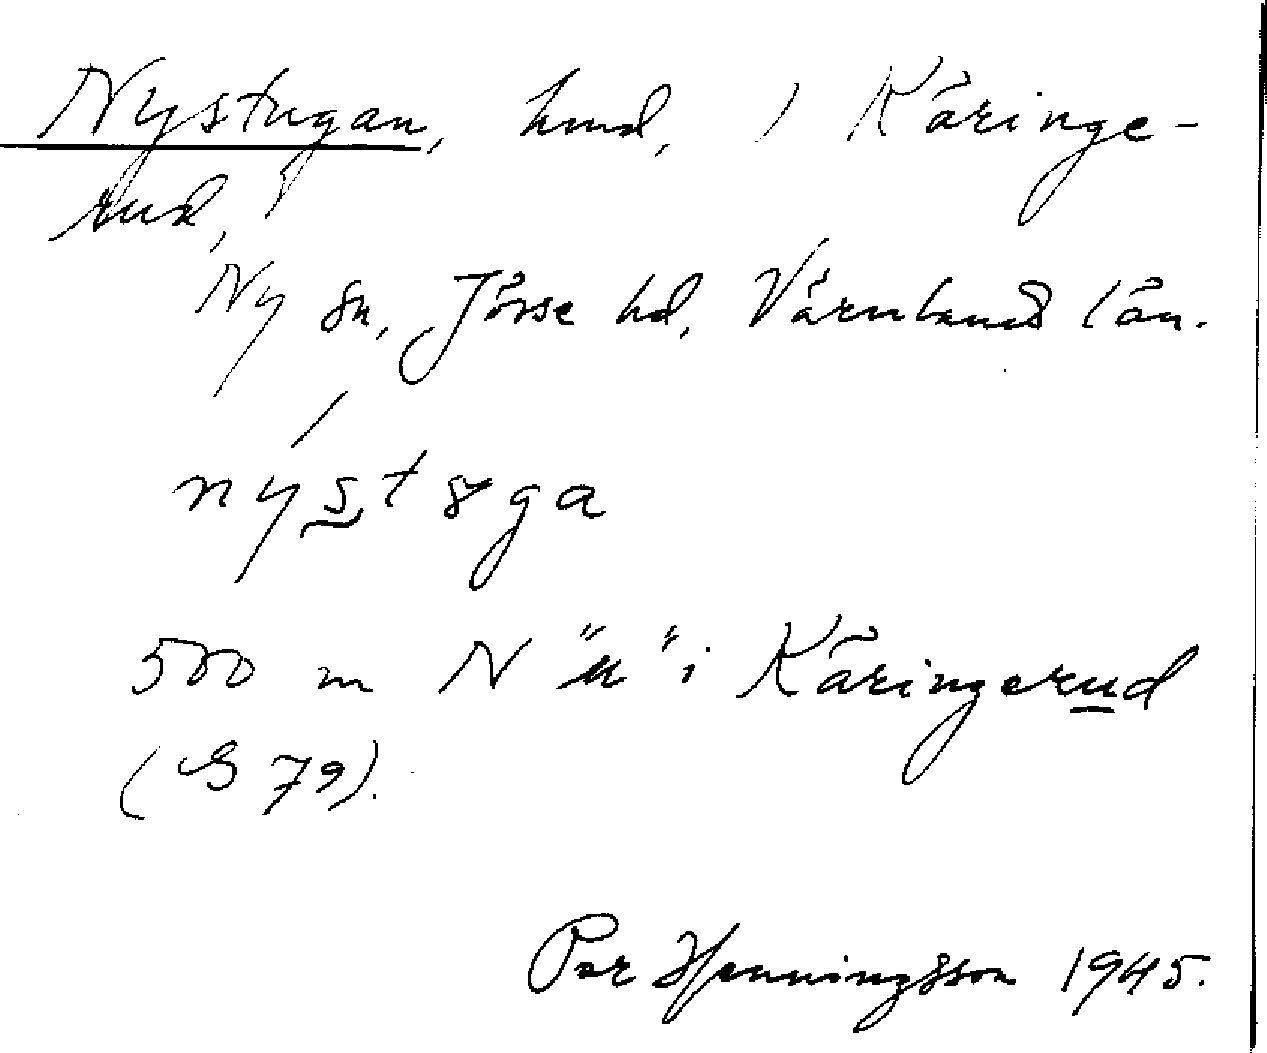 Nystugan, hmd, i Käringe-
rud,
Ny sn, Jösse hd, Värmlands län.
nýstɤga
500 m N "u" i Käringerud
(S 79).
Per Henningsson 1945.